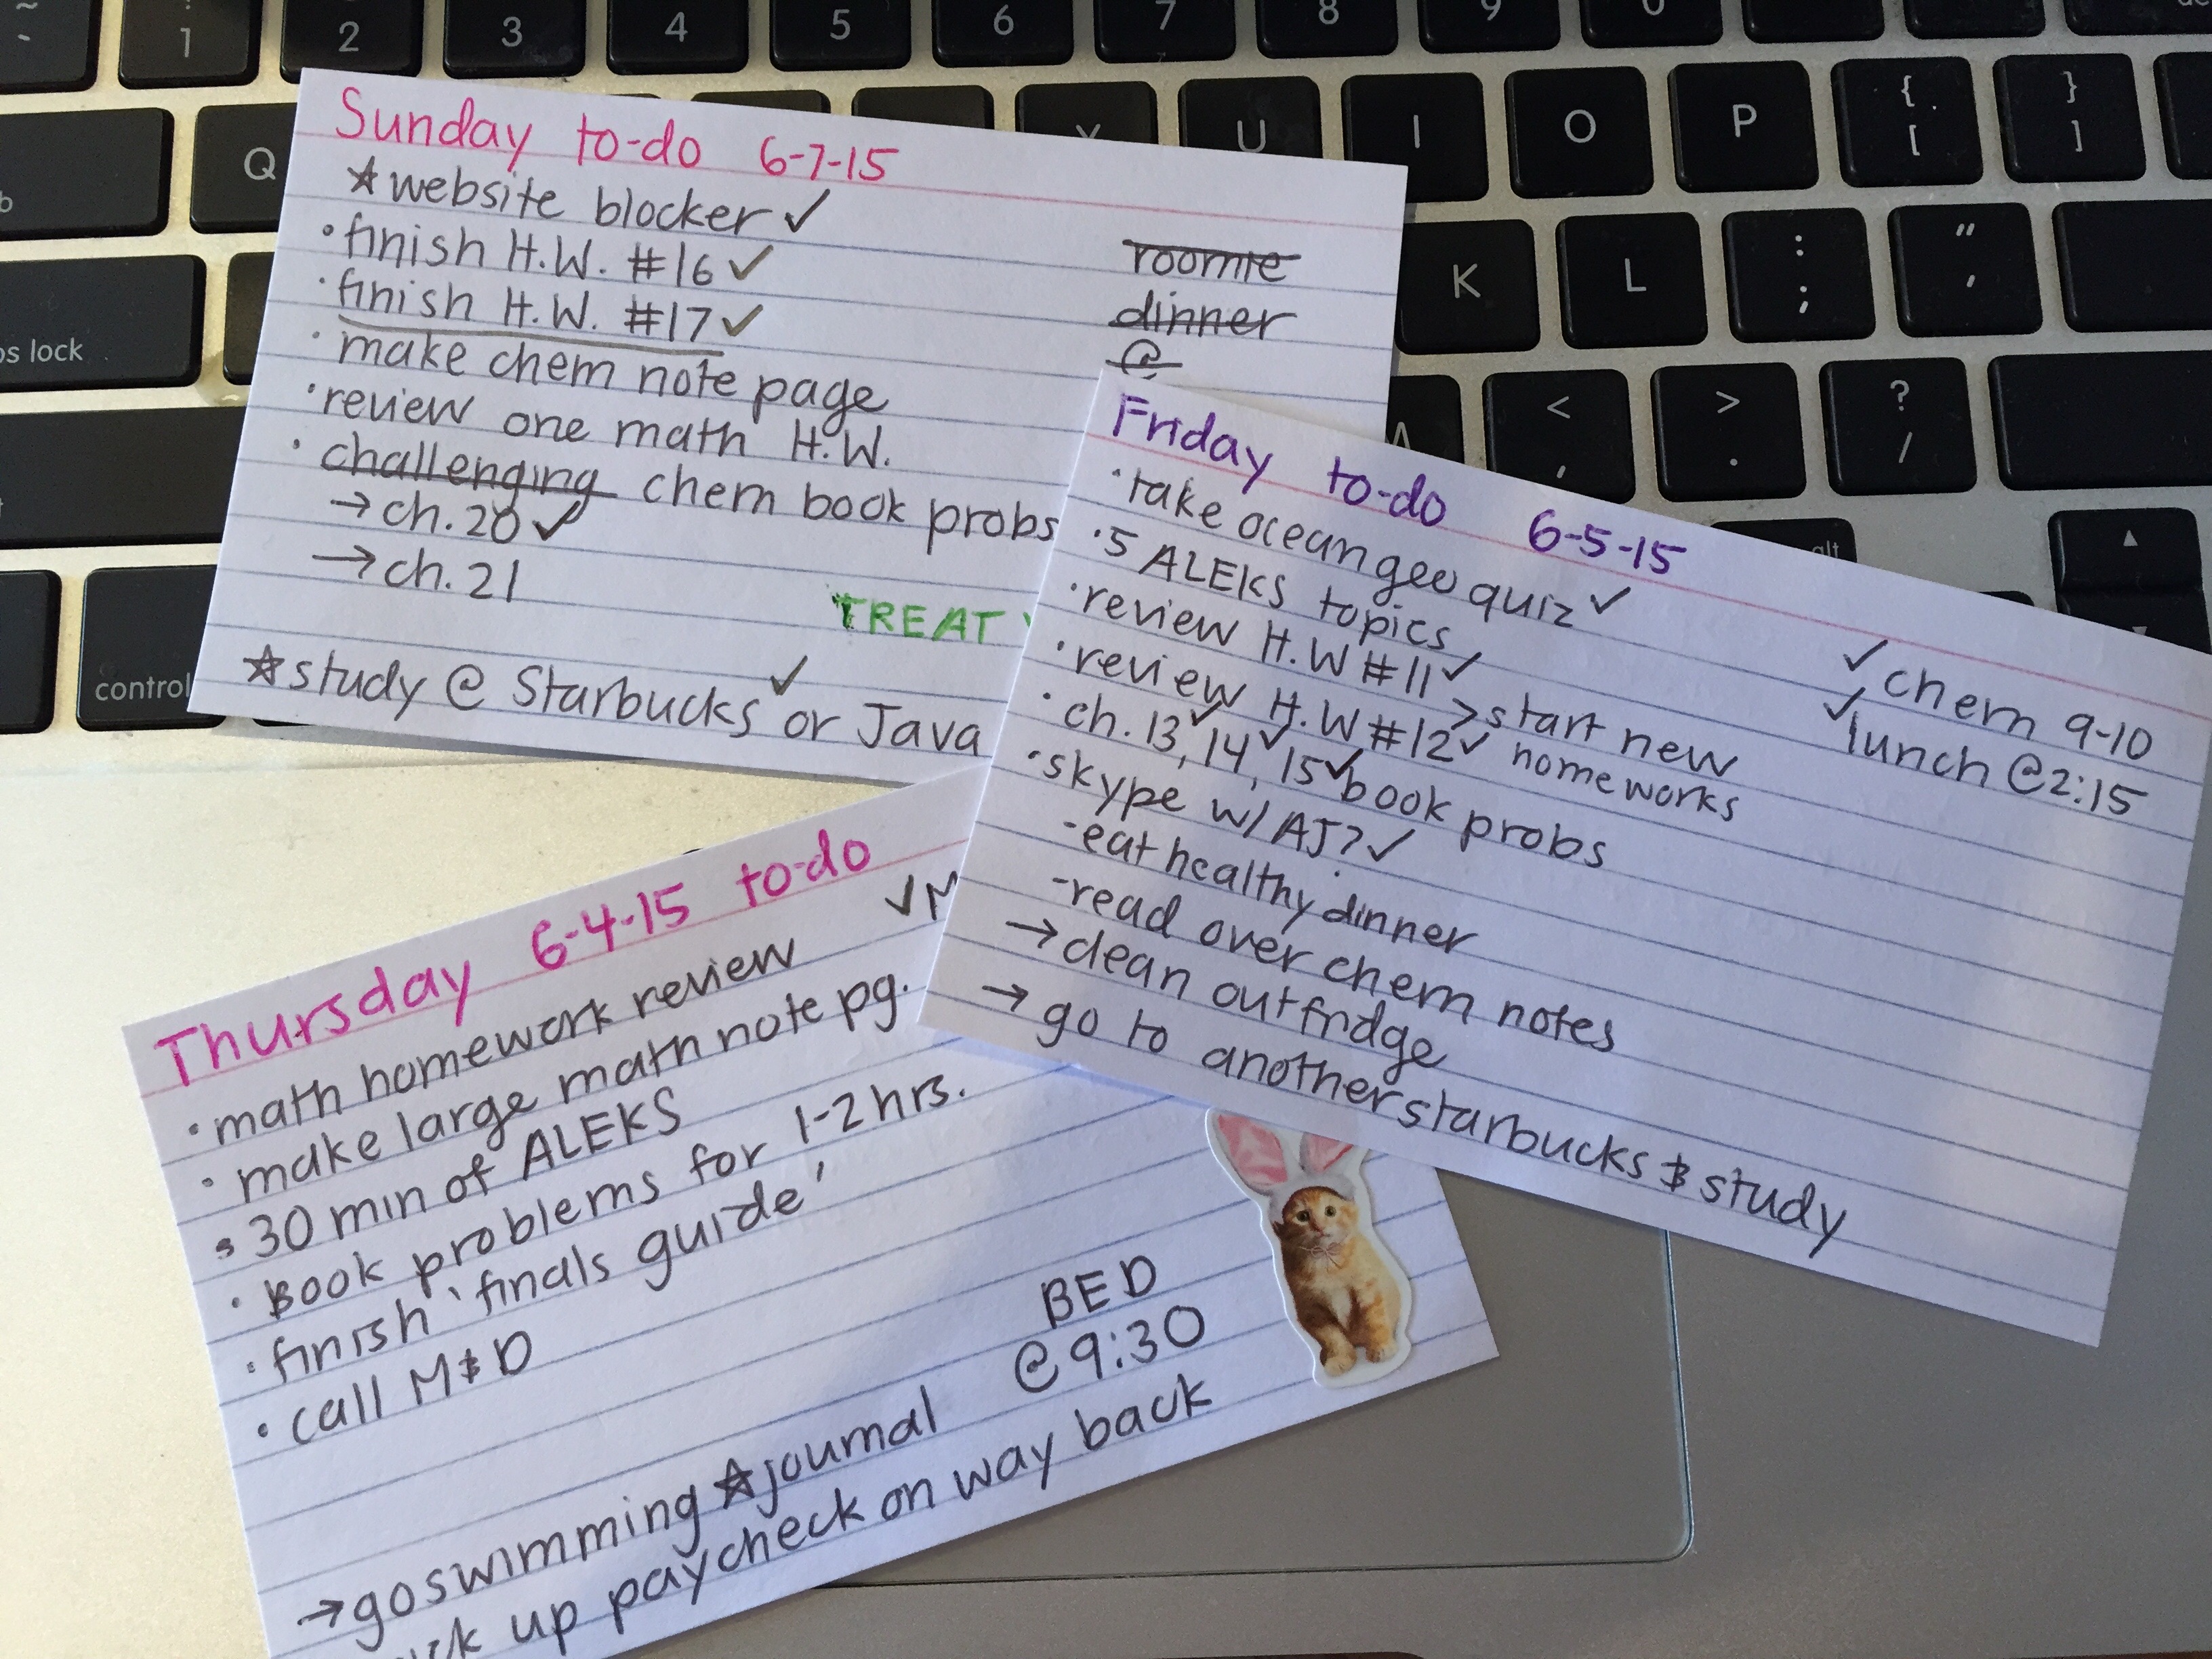 Sunday to-do 6-7-15
☆website blocker ✓
• finish H.W. #16 ✓
• finish H.W. #17 ✓
• make chem note page
• review one math H.W.
• challenging chem book probs
→ ch. 20 ✓
→ ch. 21
TREAT
☆study @ Starbucks ✓ or Java
roomie
dinner
@
Friday to-do 6-5-15
• take ocean geo quiz ✓
• 5 ALEKS topics
• review H.W #11 ✓
• review H.W #12 ✓ >start new homeworks
• ch. 13 ✓, 14 ✓, 15 ✓ book probs
• skype w/ AJ? ✓
- eat healthy dinner
- read over chem notes
→ clean out fridge
→ go to another starbucks & study
✓ chem 9-10
✓ lunch @ 2:15
Thursday 6-4-15 to-do
✓ M
• math homework review
• make large math note pg.
• 30 min of ALEKS
• Book problems for 1-2 hrs.
• finish 'finals guide'
• call M & D
BED
@ 9:30
→ go swimming ☆journal
up paycheck on way back
~
`
1
2
3
4
5
6
7
8
9
0
Q
Y
U
I
O
P
{
[
}
]
K
L
:
;
"
'
<
,
>
.
?
/
alt
control
▲